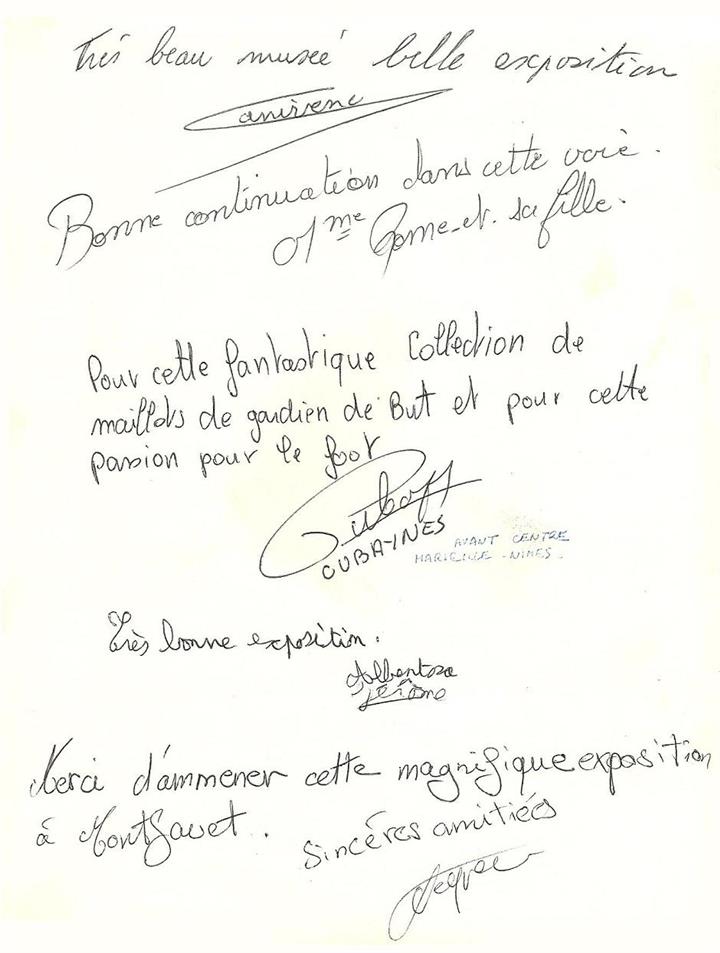 Très beau museé belle exposition
Bonne continuation dans cette voie.
Mme Rome et sa fille.
Pour cette fantastique Collection de
maillots de gardien de But et pour cette
passion pour le foot
CUBAYNES
AVANT CENTRE
MARSEILLE - NIMES.
Très bonne exposition.
Albentosa
Jérôme
Merci d'ammener cette magnifique exposition
à Montfavet.
Sincéres amitiés